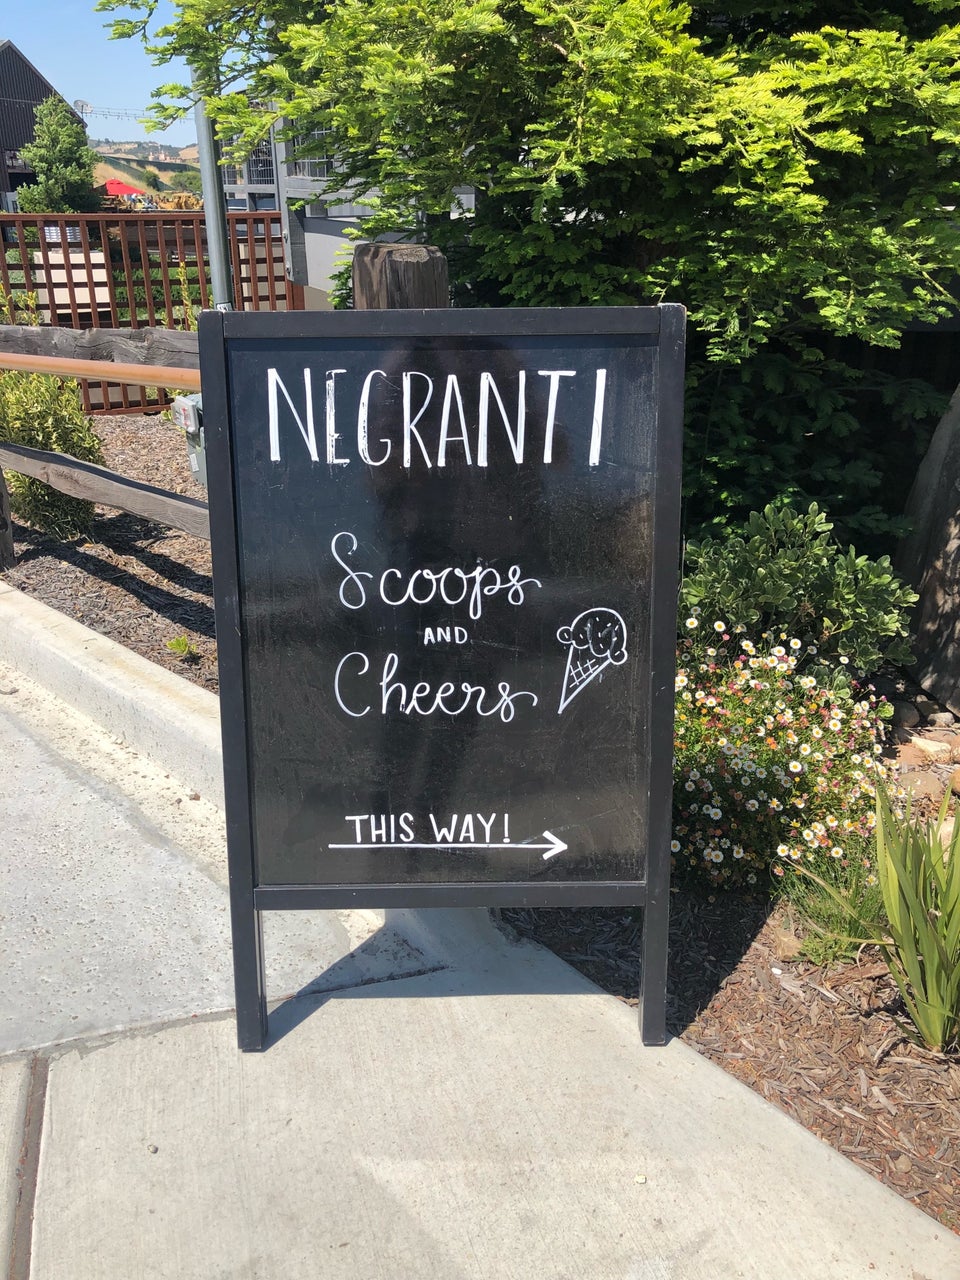 NEGRANTI
Scoops
AND
Cheers
THIS WAY!